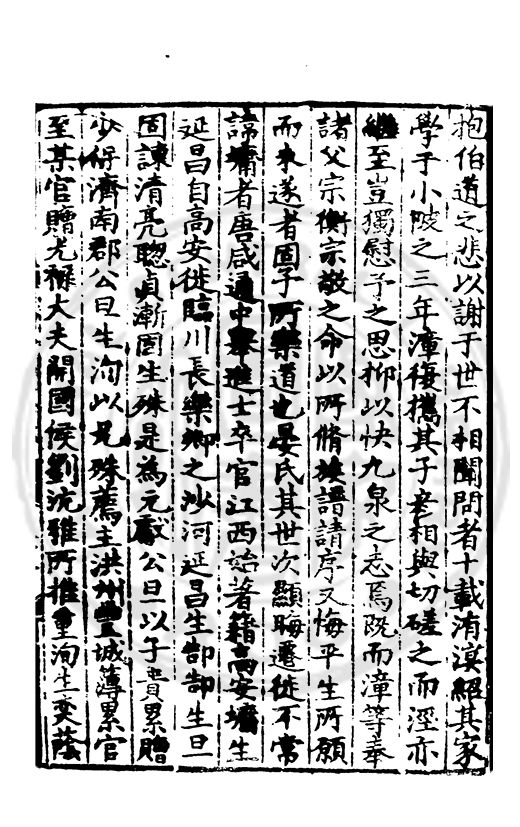 抱伯道之悲以謝于世不相聞問者十載洧淇紹其家
學于小陂之三年漳復攜其子彥相與切磋之而涇亦
繼至豈獨慰予之思抑以快九泉之志焉既而漳等奉
諸父宗衡宗敬之命以所脩族譜請序又悔平生所願
而未遂者固予所樂道也晏氏其世次顯晦遷徙不常
諱墉者唐咸通中舉進士卒官江西始著籍高安墉生
延昌自高安徙臨川長樂鄉之沙河延昌生郜郜生旦
固諫清亮聰貞漸固生殊是為元獻公旦以子貴累贈
少保濟南郡公旦生洵以兄殊薦主洪州豐城簿累官
至某官贈光祿大夫開國侯劉沆雅所推重洵生奕蔭